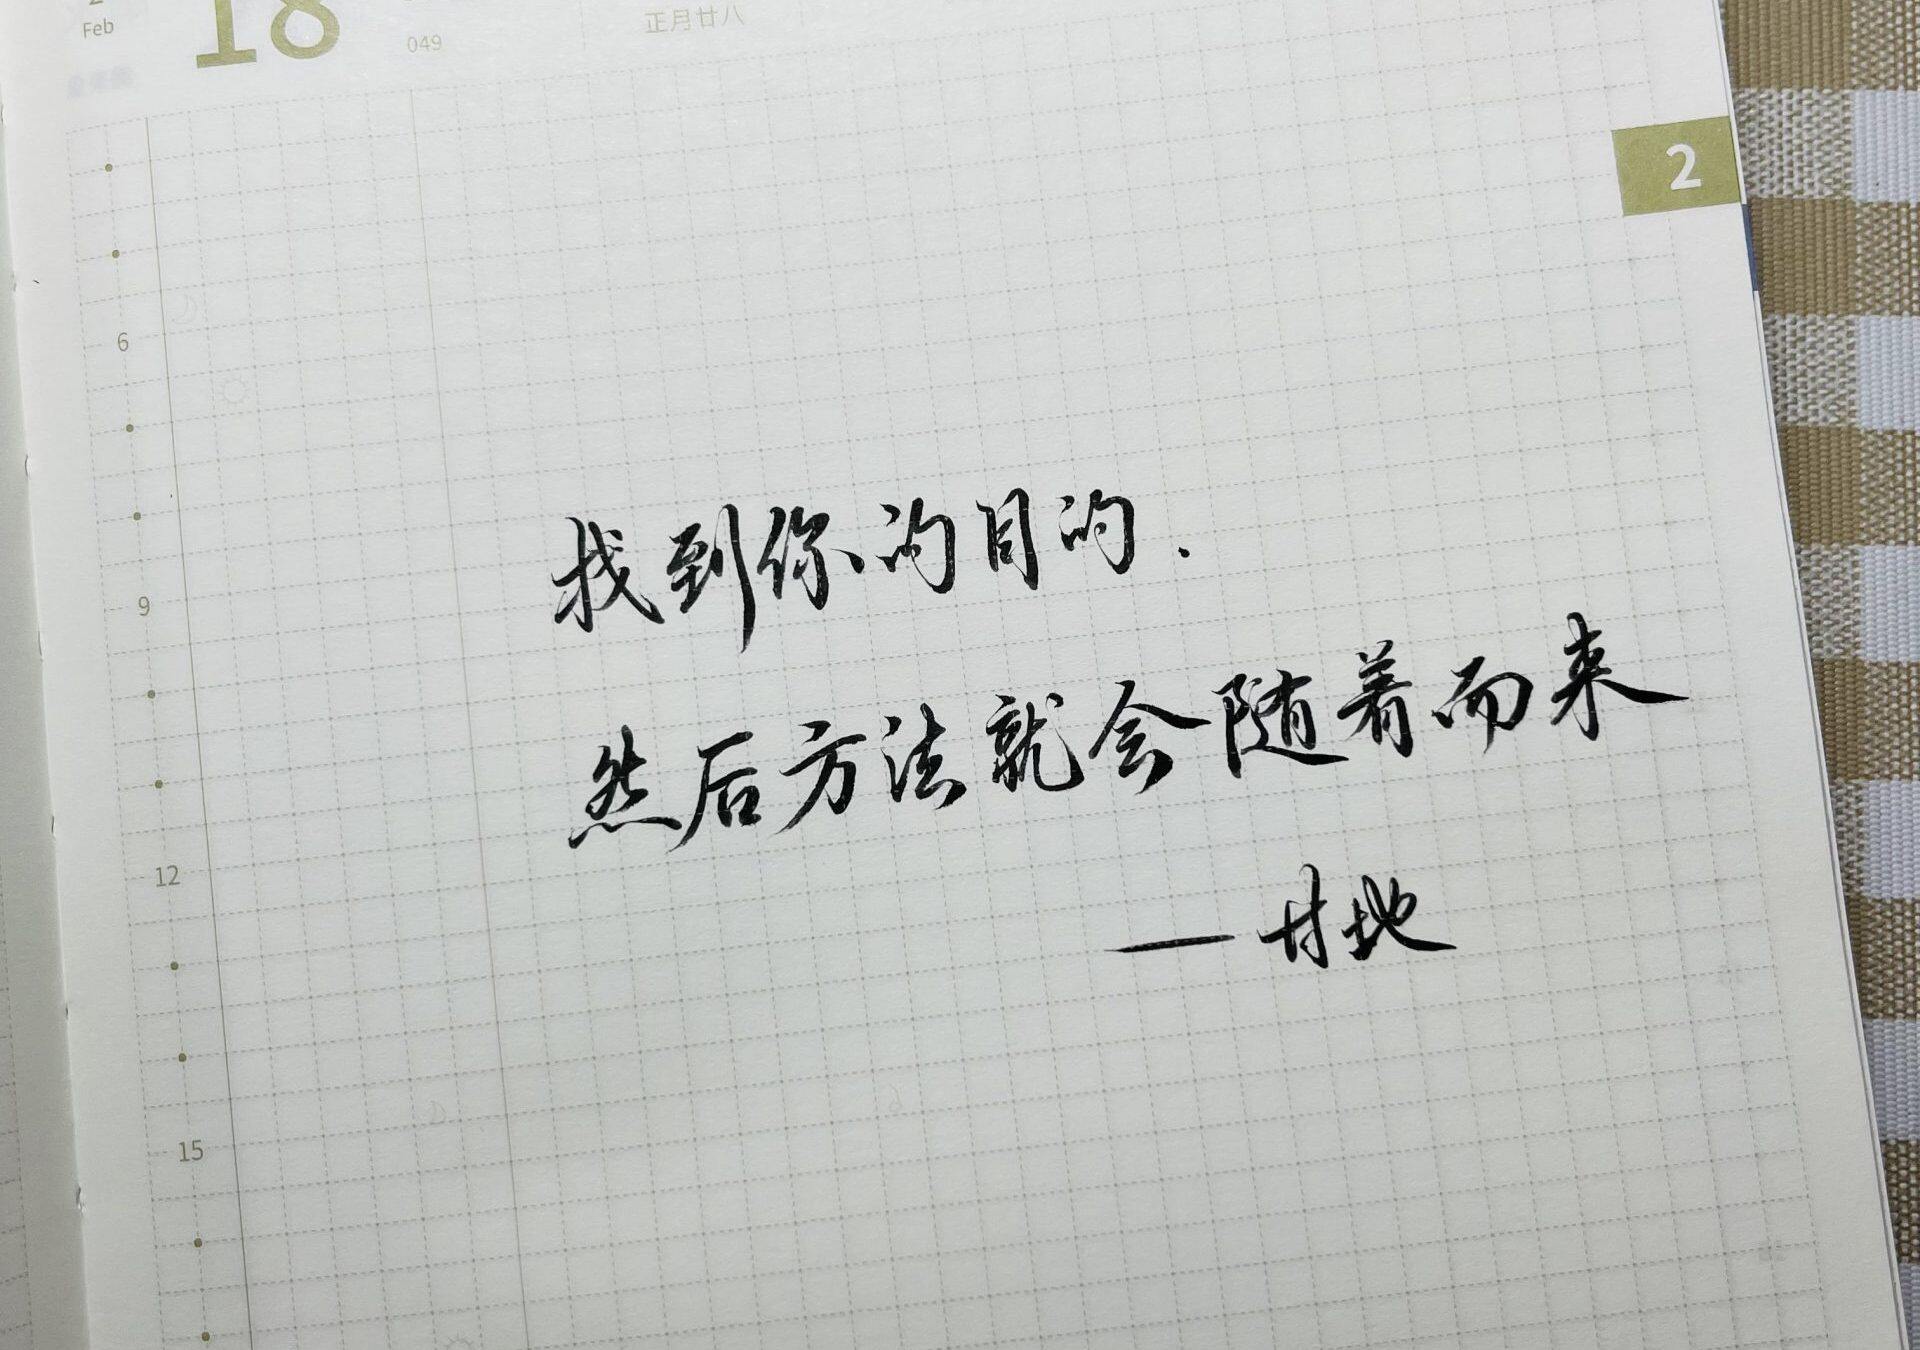 Feb
18
049
正月廿八
2
6
9
12
15
找到你的目的.
然后方法就会随着而来
—甘地